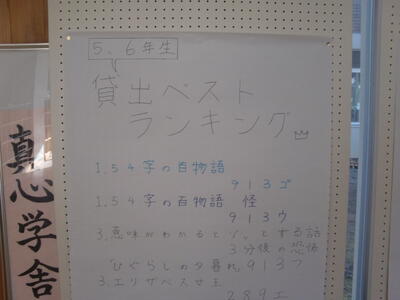 5、6年生
貸出ベスト
ランキング
1.54字の百物語
913ゴ
1.54字の百物語 怪
913ウ
3.意味がわかるとゾッとする話
3分後の恐怖
ひぐらしの夕暮れ 913
3.エリザベス女王
289エ
真心学舎